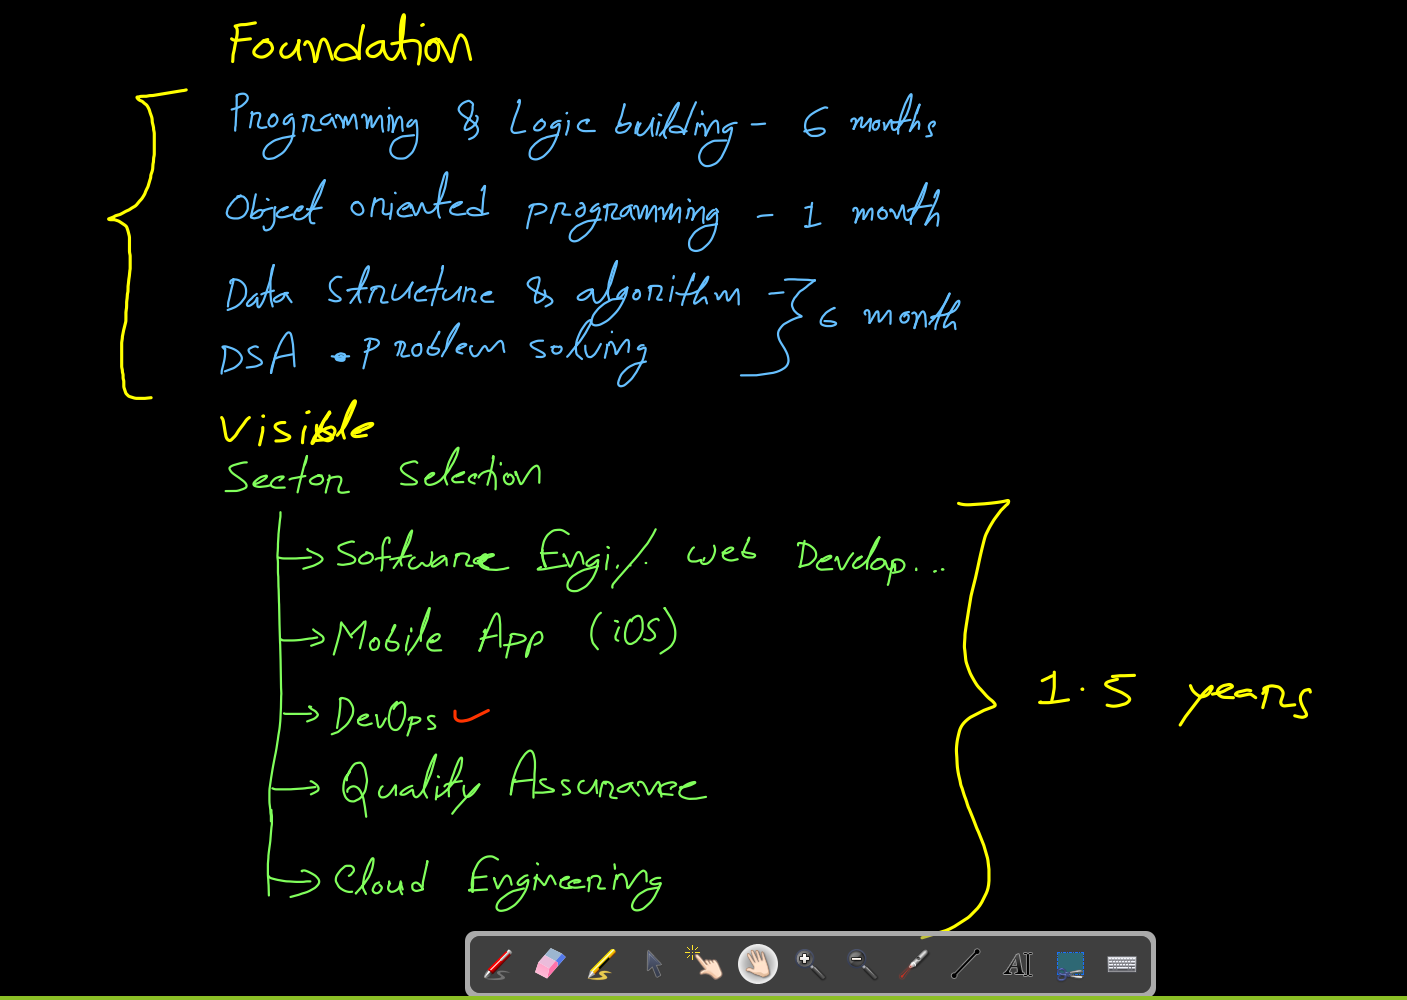 Foundation
Programming & Logic building - 6 months
Object oriented programming - 1 month
Data Structure & algorithm -
DSA . Problem solving
6 month
Visible
Sector Selection
Software Engi./. web Develop...
Mobile App (iOS)
DevOps ✓
Quality Assurance
Cloud Engineering
1.5 years
AI